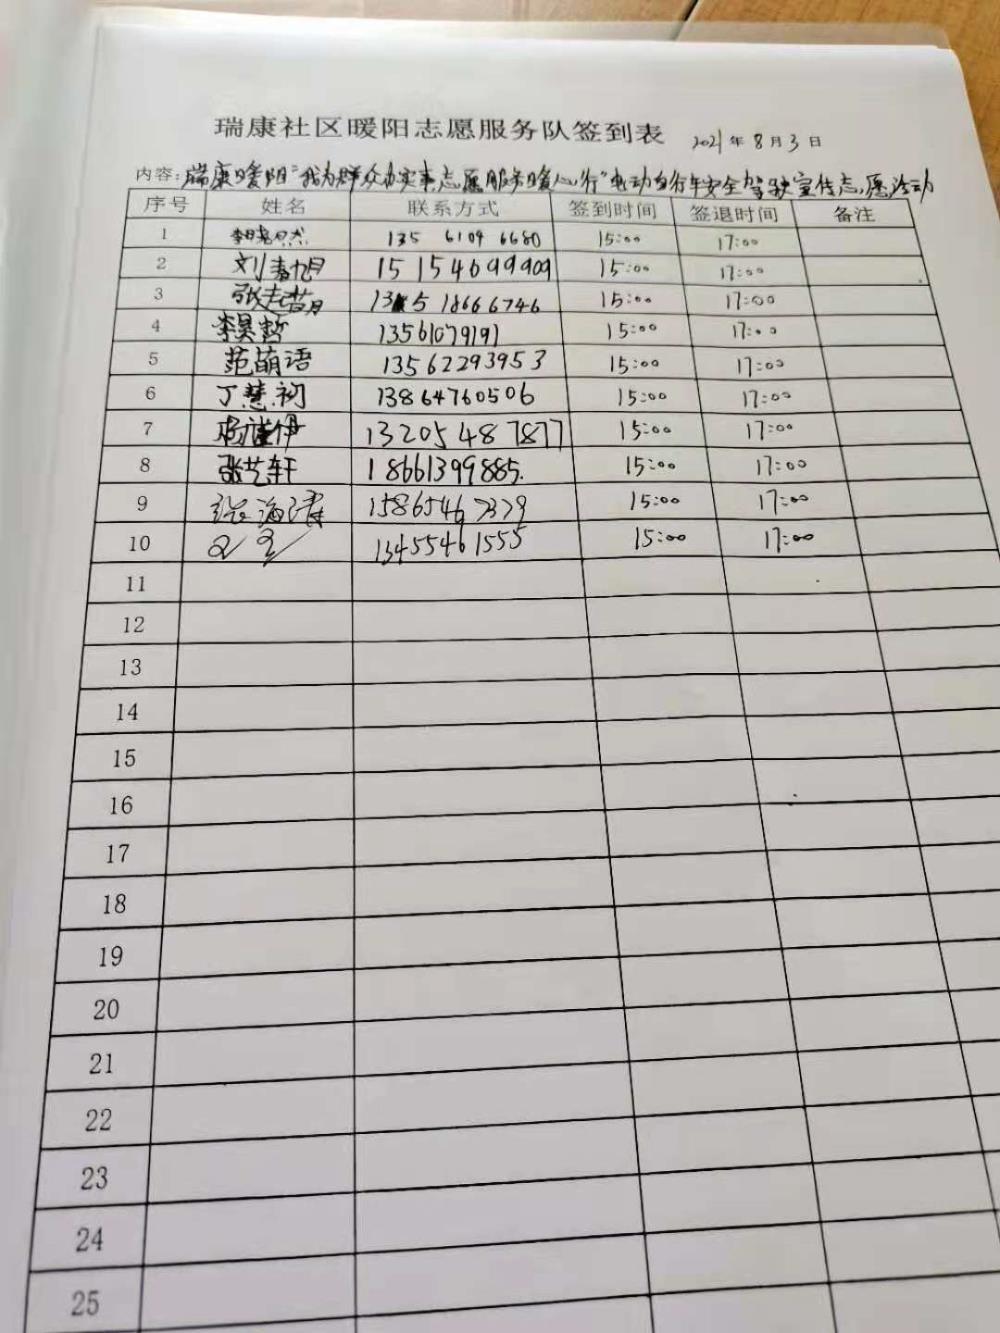 瑞康社区暖阳志愿服务队签到表 2021年8月3日
内容:瑞康暖阳"我为群众办实事志愿服务暖心行"电动自行车安全驾驶宣传志愿活动
序号 姓名 联系方式 签到时间 签退时间 备注
1 135 6109 6680 15:00 17:00
2 刘 15154699909 15:00 17:00
3 张 18666746 15:00 17:00
4 李昊哲 13561079191 15:00 17:00
5 范萌语 13562293953 15:00 17:00
6 丁慧初 13864760506 15:00 17:00
7 13205487877 15:00 17:00
8 张艺轩 18661399885. 15:00 17:00
9 张海 15865467379 15:00 17:00
10 13455461555 15:00 17:00
11
12
13
14
15
16
17
18
19
20
21
22
23
24
25